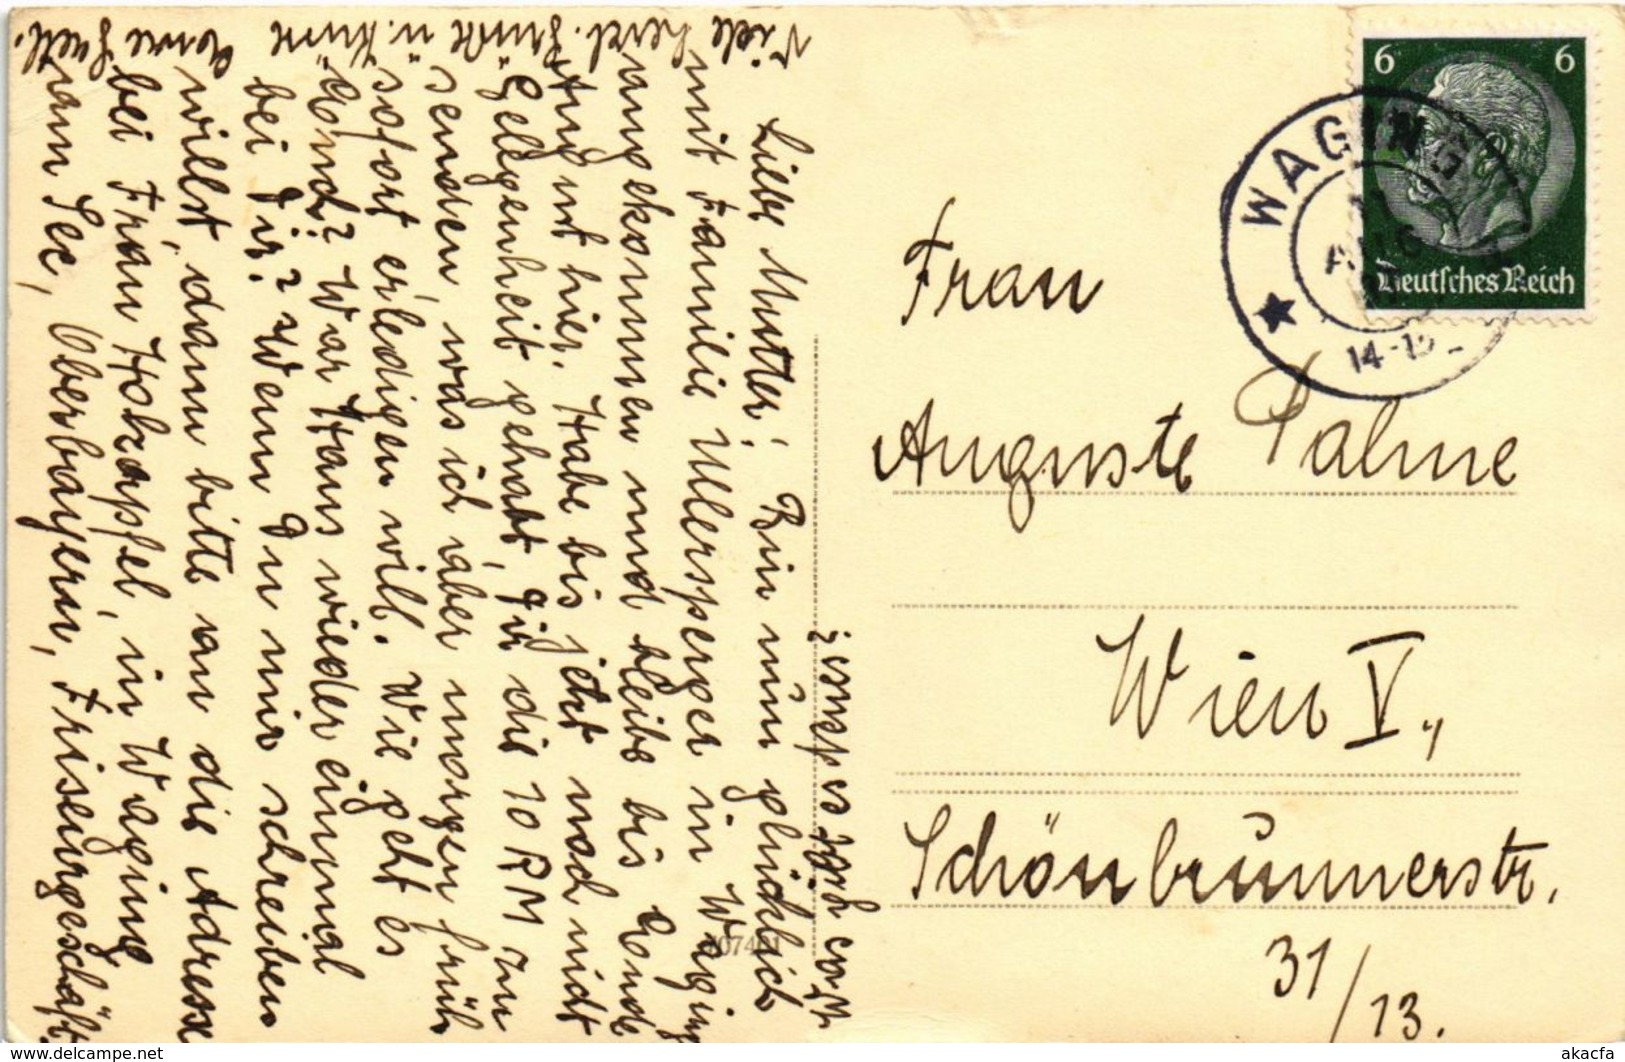 Liebe Mutter! Bin nun glücklich
mit Familie Ullersperger in Waging
angekommen und bleibe bis Ende
August hier. Habe bis jetzt noch nicht
Gelegenheit gehabt, Dir die 10 RM zu
senden, was ich aber morgen früh
sofort erledigen will. Wie geht es
War Hans wieder einmal
bei Dir? Wenn Du mir schreiben
willst, dann bitte an die Adresse
bei Frau Holzapfel, in Waging
am See, Oberbayern, Friseurgeschäft.
Viele herzl.
Frau
Auguste Palme
Wien V.,
Schönbrunnerstr.
31/13.
6 6
Deutsches Reich
WAGING
14-15
akacfa